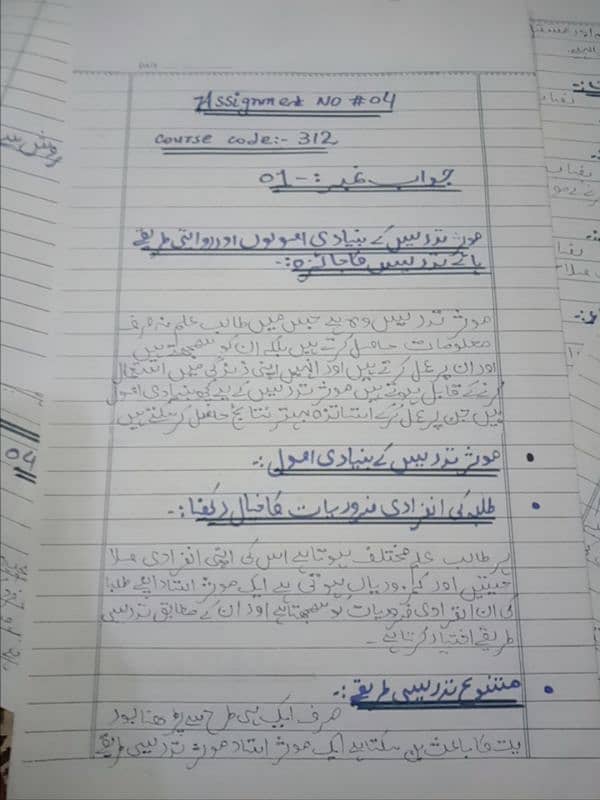 Assignment NO # 04
Course code:- 312
جواب نمبر :- 01
موثر تدریس کے بنیادی اصولوں اور روایتی طریقے
ہائے تدریس کا جائزہ:-
موثر تدریس وہ ہے جس میں طالب علم نہ صرف
معلومات حاصل کرتے ہیں بلکہ ان کو سمجھتے ہیں
اور ان پر عمل کرتے ہیں اور انہیں اپنی زندگی میں استعمال
کرنے کے قابل ہوتے ہیں موثر تدریس کے لیے کچھ بنیادی اصول
ہیں جن پر عمل کرکے اساتذہ بہتر نتائج حاصل کر سکتے ہیں
• موثر تدریس کے بنیادی اصول :-
• طلبہ کی انفرادی ضروریات کا خیال رکھنا :-
ہر طالب علم مختلف ہوتا ہے اس کی اپنی انفرادی صلا
حیتیں اور کمزوریاں ہوتی ہے ایک موثر استاد اپنے طلبا
کی ان انفرادی ضروریات کو سمجھتا ہے اور ان کے مطابق تدریسی
طریقے اختیار کرتا ہے -
• متنوع تدریسی طریقے :-
صرف ایک ہی طرح سے پڑھنا بور
یت کا باعث بن سکتا ہے ایک موثر استاد موثر تدریسی طریقے
04